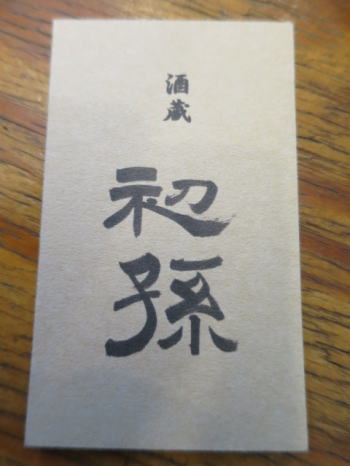 酒蔵
初孫